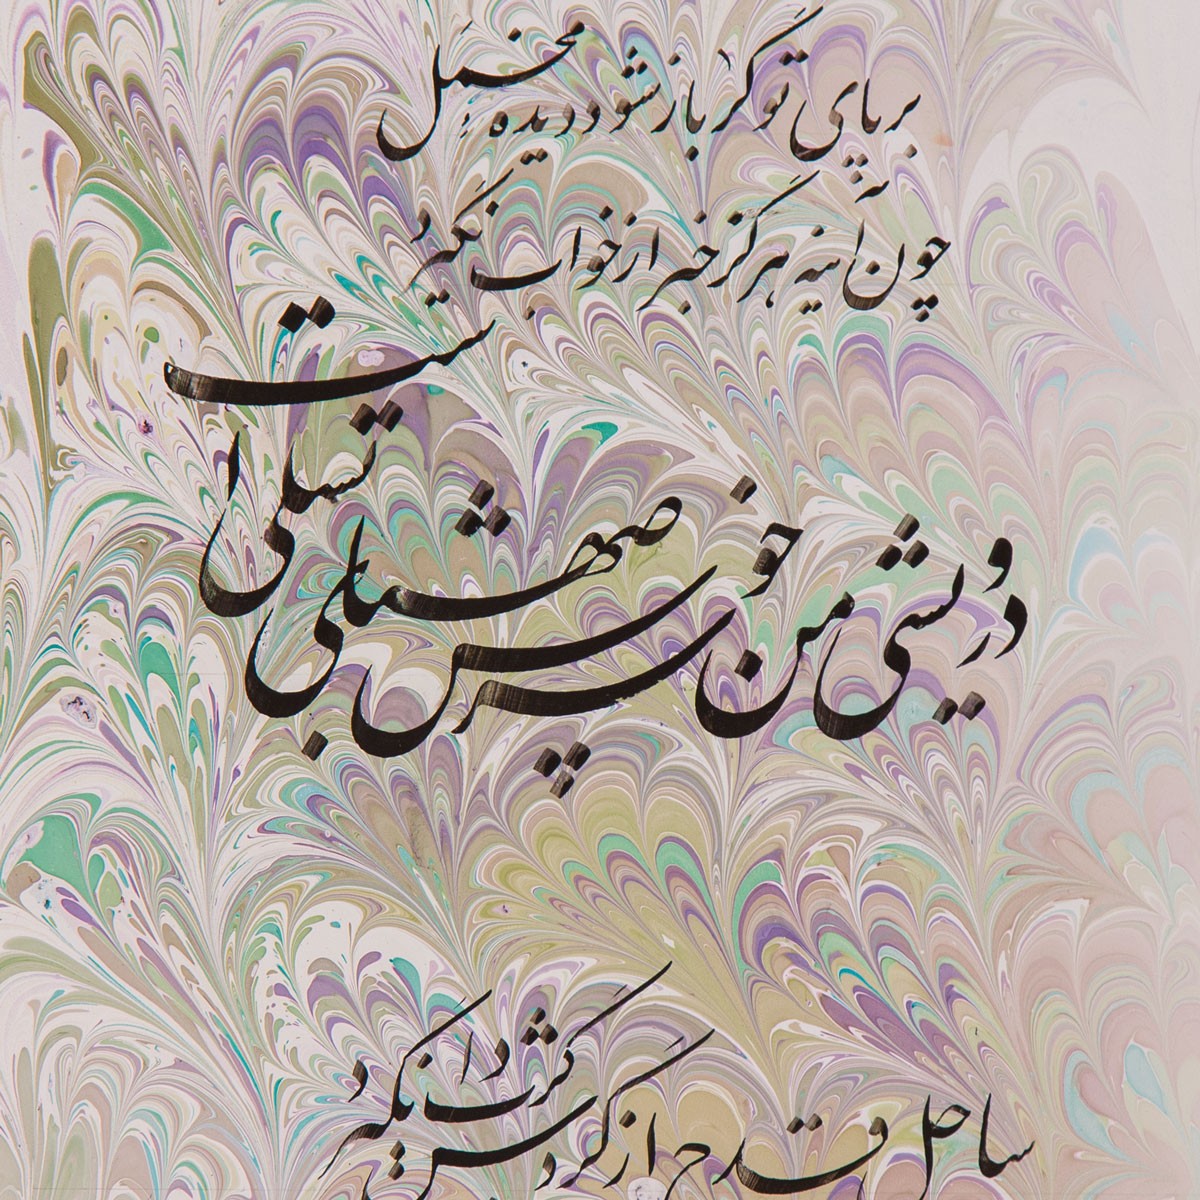 بر پای تو گر باز شود دیده مخمل
چون آینه هرگز خبر از خواب نگیرد
درویشی من سرخوش صهبای تسلی است
ساحل قدح از گردش گرداب نگیرد